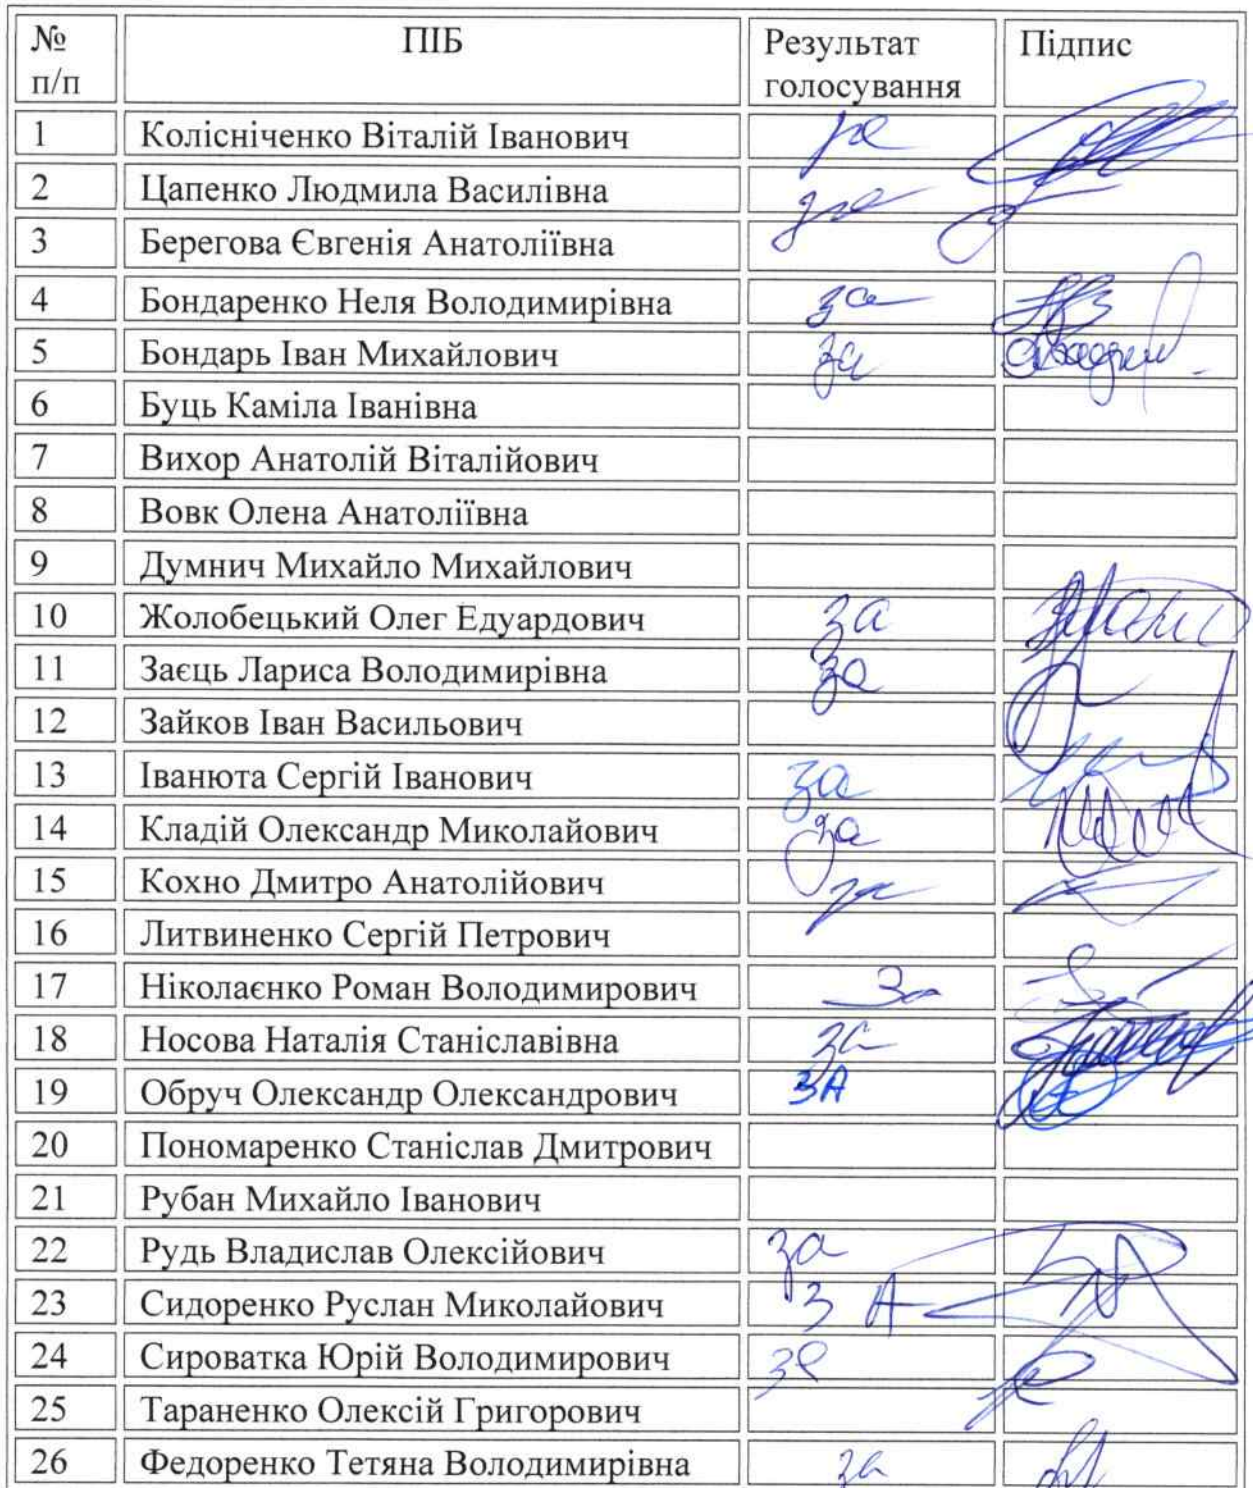 № ПІБ Результат Підпис
п/п голосування
1 Колісніченко Віталій Іванович за
2 Цапенко Людмила Василівна за
3 Берегова Євгенія Анатоліївна
4 Бондаренко Неля Володимирівна за
5 Бондарь Іван Михайлович за
6 Буць Каміла Іванівна
7 Вихор Анатолій Віталійович
8 Вовк Олена Анатоліївна
9 Думнич Михайло Михайлович
10 Жолобецький Олег Едуардович за
11 Заєць Лариса Володимирівна за
12 Зайков Іван Васильович
13 Іванюта Сергій Іванович за
14 Кладій Олександр Миколайович за
15 Кохно Дмитро Анатолійович за
16 Литвиненко Сергій Петрович
17 Ніколаєнко Роман Володимирович За
18 Носова Наталія Станіславівна за
19 Обруч Олександр Олександрович ЗА
20 Пономаренко Станіслав Дмитрович
21 Рубан Михайло Іванович
22 Рудь Владислав Олексійович за
23 Сидоренко Руслан Миколайович З А
24 Сироватка Юрій Володимирович за
25 Тараненко Олексій Григорович
26 Федоренко Тетяна Володимирівна за